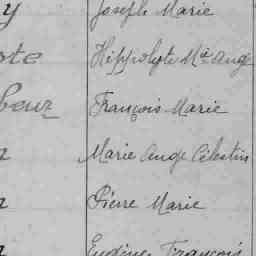 y Joseph Marie
ote Hippolyte Mie Ange
beux François Marie
Marie Ange Célestin
Pierre Marie
Eugène François